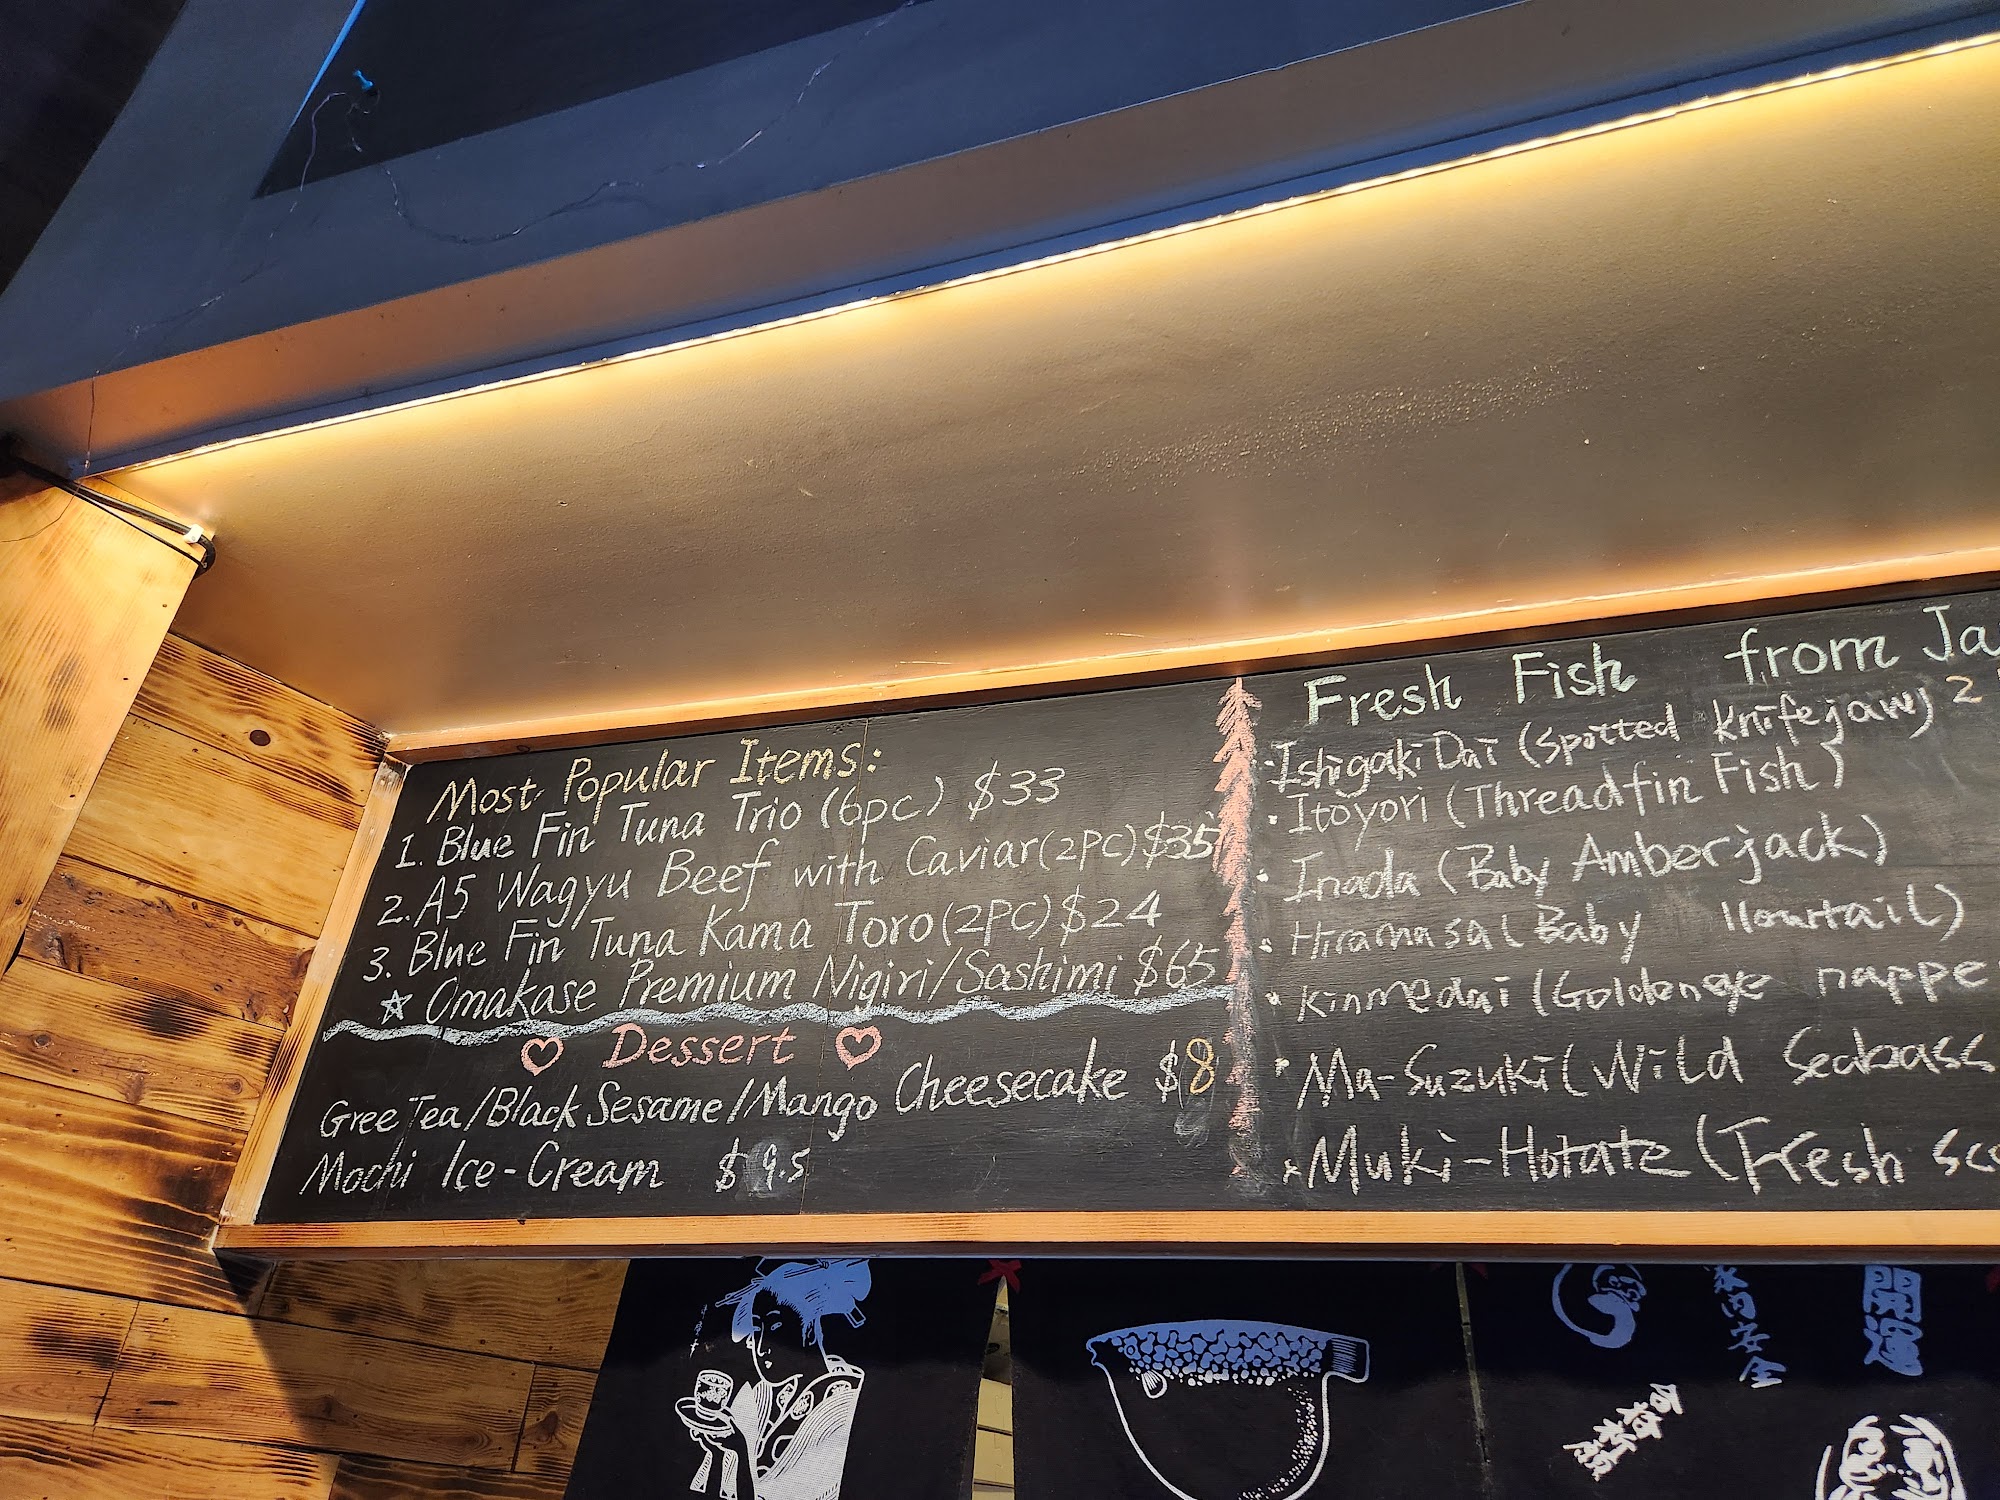 Most Popular Items:
1. Blue Fin Tuna Trio (6pc) $33
2. A5 Wagyu Beef with Caviar (2PC) $35
3. Blue Fin Tuna Kama Toro (2PC) $24
☆ Omakase Premium Nigiri/Sashimi $65
♡ Dessert ♡
Gree Tea/Black Sesame/Mango Cheesecake $8
Mochi Ice-Cream $9.5
Fresh Fish from Ja
· Ishigaki Dai (Spotted Knifejaw) 2
· Itoyori (Threadfin Fish)
· Inada (Baby Amberjack)
· Hiramasa (Baby
· Kinmedai (Goldeneye nappe
· Ma-Suzuki (Wild Seabass
· Muki-Hotate (Fresh sca
家内安全
開運